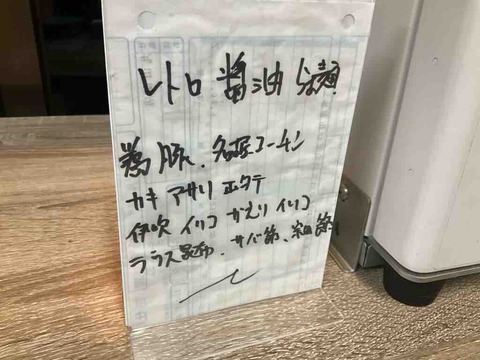 レトロ 醤油 らぁ麺
鴨 豚、名古屋コーチン
カキ アサリ ホタテ
伊吹 イリコ かえり イリコ
ラウス昆布、サバ節、宗田節